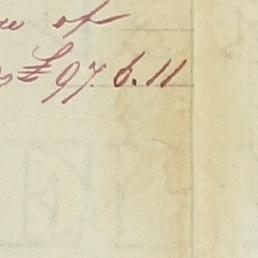 of
£97.6.11